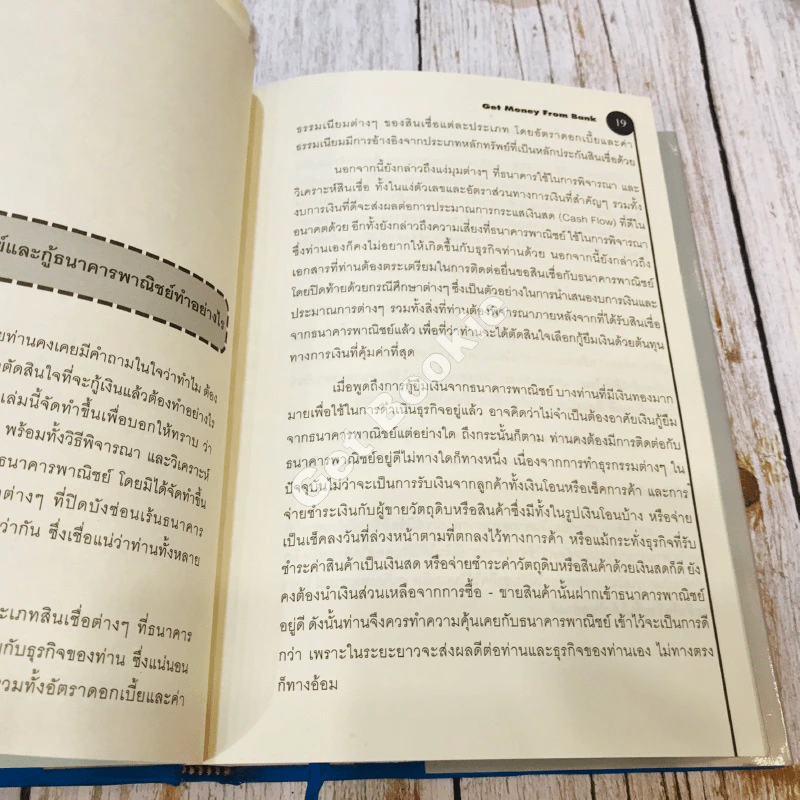 ย์และกู้ธนาคารพาณิชย์ทำอย่างไร
ยท่านคงเคยมีคำถามในใจว่าทำไม ต้อง
ตัดสินใจที่จะกู้เงินแล้วต้องทำอย่างไร
เล่มนี้จัดทำขึ้นเพื่อบอกให้ทราบ ว่า
พร้อมทั้งวิธีพิจารณา และวิเคราะห์
ธนาคารพาณิชย์ โดยมิได้จัดทำขึ้น
ต่างๆ ที่ปิดบังซ่อนเร้นธนาคาร
ว่ากัน ซึ่งเชื่อแน่ว่าท่านทั้งหลาย
ะเภทสินเชื่อต่างๆ ที่ธนาคาร
กับธุรกิจของท่าน ซึ่งแน่นอน
รวมทั้งอัตราดอกเบี้ยและค่า
Get Money From Bank 19
ธรรมเนียมต่างๆ ของสินเชื่อแต่ละประเภท โดยอัตราดอกเบี้ยและค่า
ธรรมเนียมมีการอ้างอิงจากประเภทหลักทรัพย์ที่เป็นหลักประกันสินเชื่อด้วย
นอกจากนี้ยังกล่าวถึงแง่มุมต่างๆ ที่ธนาคารใช้ในการพิจารณา และ
วิเคราะห์สินเชื่อ ทั้งในแง่ตัวเลขและอัตราส่วนทางการเงินที่สำคัญๆ รวมทั้ง
งบการเงินที่ดีจะส่งผลต่อการประมาณการกระแสเงินสด (Cash Flow) ที่ดีใน
อนาคตด้วย อีกทั้งยังกล่าวถึงความเสี่ยงที่ธนาคารพาณิชย์ ใช้ในการพิจารณา
ซึ่งท่านเองก็คงไม่อยากให้เกิดขึ้นกับธุรกิจท่านด้วย นอกจากนี้ยังกล่าวถึง
เอกสารที่ท่านต้องตระเตรียมในการติดต่อยื่นขอสินเชื่อกับธนาคารพาณิชย์
โดยปิดท้ายด้วยกรณีศึกษาต่างๆ ซึ่งเป็นตัวอย่างในการนำเสนองบการเงินและ
ประมาณการต่างๆ รวมทั้งสิ่งที่ท่านต้องพิจารณาภายหลังจากที่ได้รับสินเชื่อ
จากธนาคารพาณิชย์แล้ว เพื่อที่ว่าท่านจะได้ตัดสินใจเลือกกู้ยืมเงินด้วยต้นทุน
ทางการเงินที่คุ้มค่าที่สุด
เมื่อพูดถึงการกู้ยืมเงินจากธนาคารพาณิชย์ บางท่านที่มีเงินทองมาก
มายเพื่อใช้ในการดำเนินธุรกิจอยู่แล้ว อาจคิดว่าไม่จำเป็นต้องอาศัยเงินกู้ยืม
จากธนาคารพาณิชย์แต่อย่างใด ถึงกระนั้นก็ตาม ท่านคงต้องมีการติดต่อกับ
ธนาคารพาณิชย์อยู่ดีไม่ทางใดก็ทางหนึ่ง เนื่องจากการทำธุรกรรมต่างๆ ใน
ปัจจุบันไม่ว่าจะเป็นการรับเงินจากลูกค้าทั้งเงินโอนหรือเช็คการค้า และการ
จ่ายชำระเงินกับผู้ขายวัตถุดิบหรือสินค้าซึ่งมีทั้งในรูปเงินโอนบ้าง หรือจ่าย
เป็นเช็คลงวันที่ล่วงหน้าตามที่ตกลงไว้ทางการค้า หรือแม้กระทั่งธุรกิจที่รับ
ชำระค่าสินค้าเป็นเงินสด หรือจ่ายชำระค่าวัตถุดิบหรือสินค้าด้วยเงินสดก็ดี ยัง
คงต้องนำเงินส่วนเหลือจากการซื้อ - ขายสินค้านั้นฝากเข้าธนาคารพาณิชย์
อยู่ดี ดังนั้นท่านจึงควรทำความคุ้นเคยกับธนาคารพาณิชย์ เข้าไว้จะเป็นการดี
กว่า เพราะในระยะยาวจะส่งผลดีต่อท่านและธุรกิจของท่านเอง ไม่ทางตรง
ก็ทางอ้อม